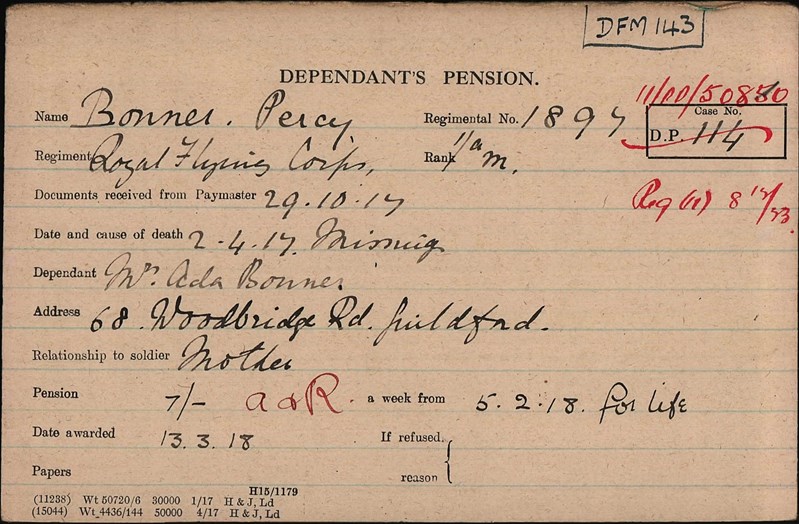 DFM 143
DEPENDANT'S PENSION.
11/DD/50850
Name Bonner. Percy Regimental No. 1897 Case No. D.P. 114
Regiment Royal Flying Corps, Rank 1/am.
Documents received from Paymaster 29.10.17 Reg 8 12/23.
Date and cause of death 2.4.17. Missing
Dependant Mrs. Ada Bonner
Address 68. Woodbridge Rd. Guildford.
Relationship to soldier Mother
Pension 7/- A & R. a week from 5.2.18. for life
Date awarded 13.3.18 If refused.
Papers reason
H15/1179
(11238) Wt 50720/6 30000 1/17 H & J, Ld
(15044) Wt 4436/144 50000 4/17 H & J, Ld